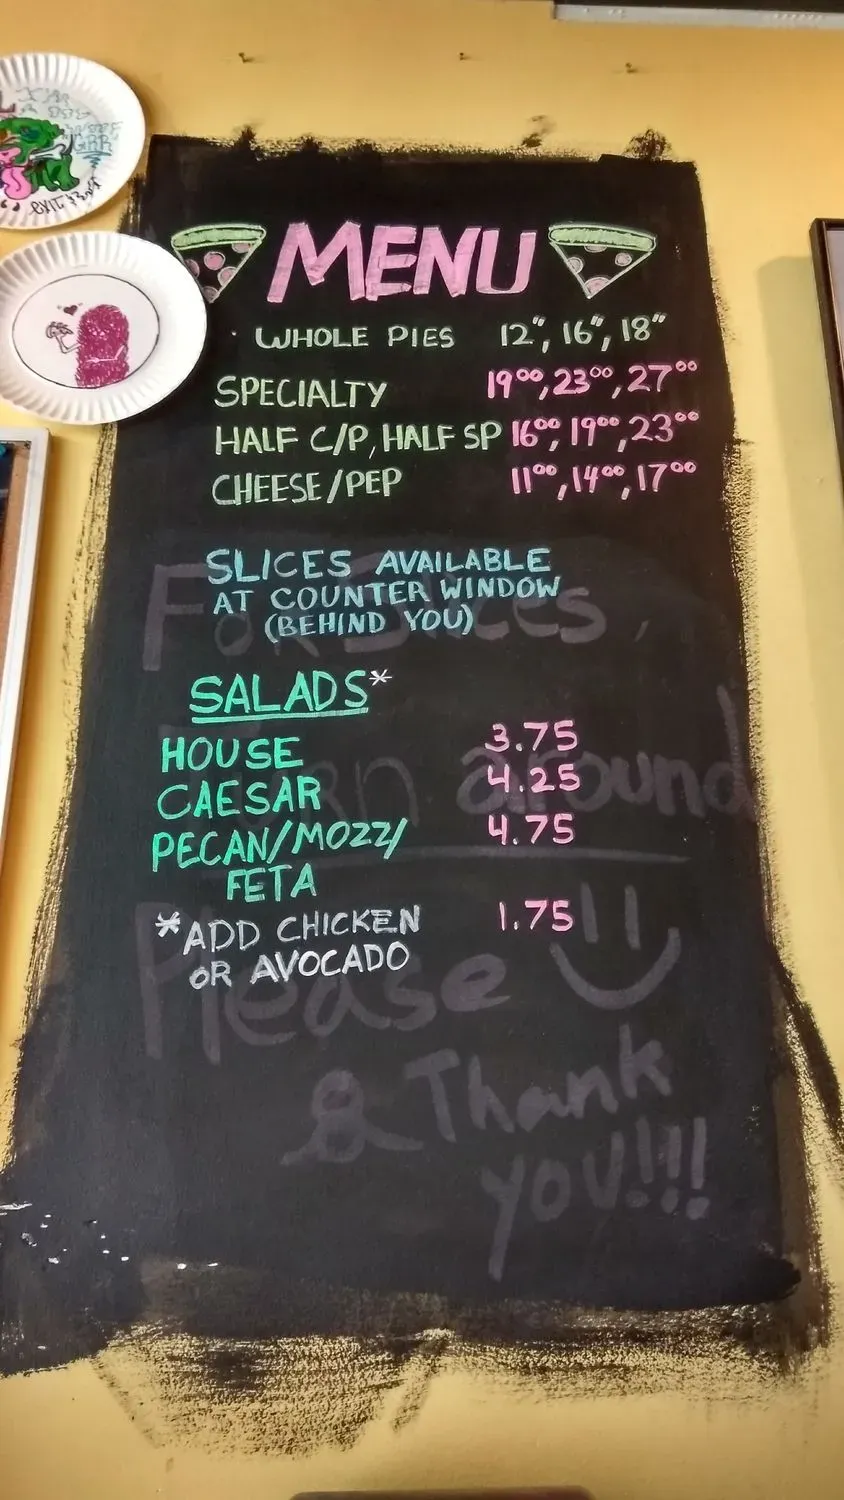 MENU
WHOLE PIES 12", 16", 18"
SPECIALTY 19⁰⁰, 23⁰⁰, 27⁰⁰
HALF C/P, HALF SP 16⁰⁰, 19⁰⁰, 23⁰⁰
CHEESE/PEP 11⁰⁰, 14⁰⁰, 17⁰⁰
SLICES AVAILABLE
AT COUNTER WINDOW
(BEHIND YOU)
SALADS*
HOUSE 3.75
CAESAR 4.25
PECAN/MOZZ/ 4.75
FETA
*ADD CHICKEN 1.75
OR AVOCADO
For Slices,
Turn around
Please
& Thank
you!!!
GRR